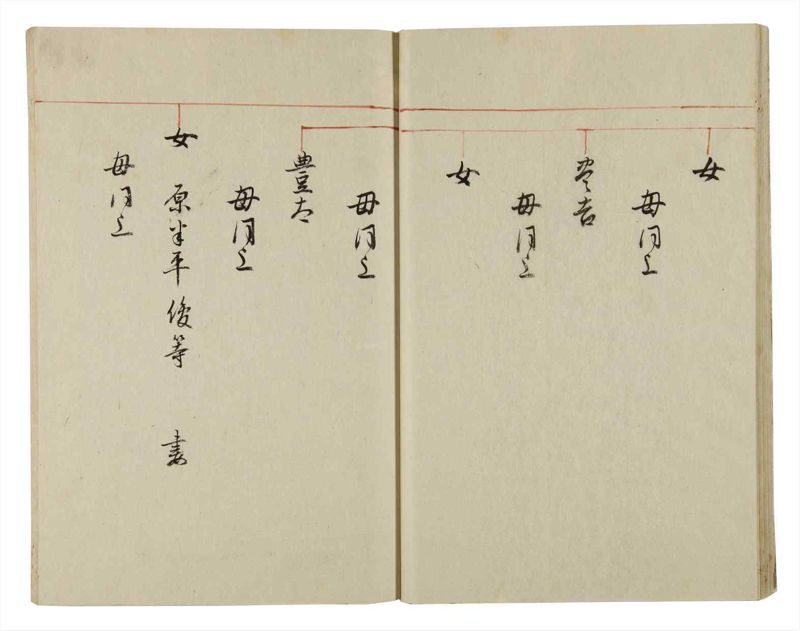 女
母同上
吉
母同上
女
母同上
豊太
母同上
女 原半平俊等 妻
母同上